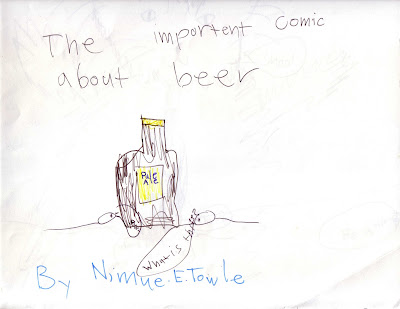 The importent Comic
about beer
PALE
ALE
What is this?
By Nimue.E.Towle